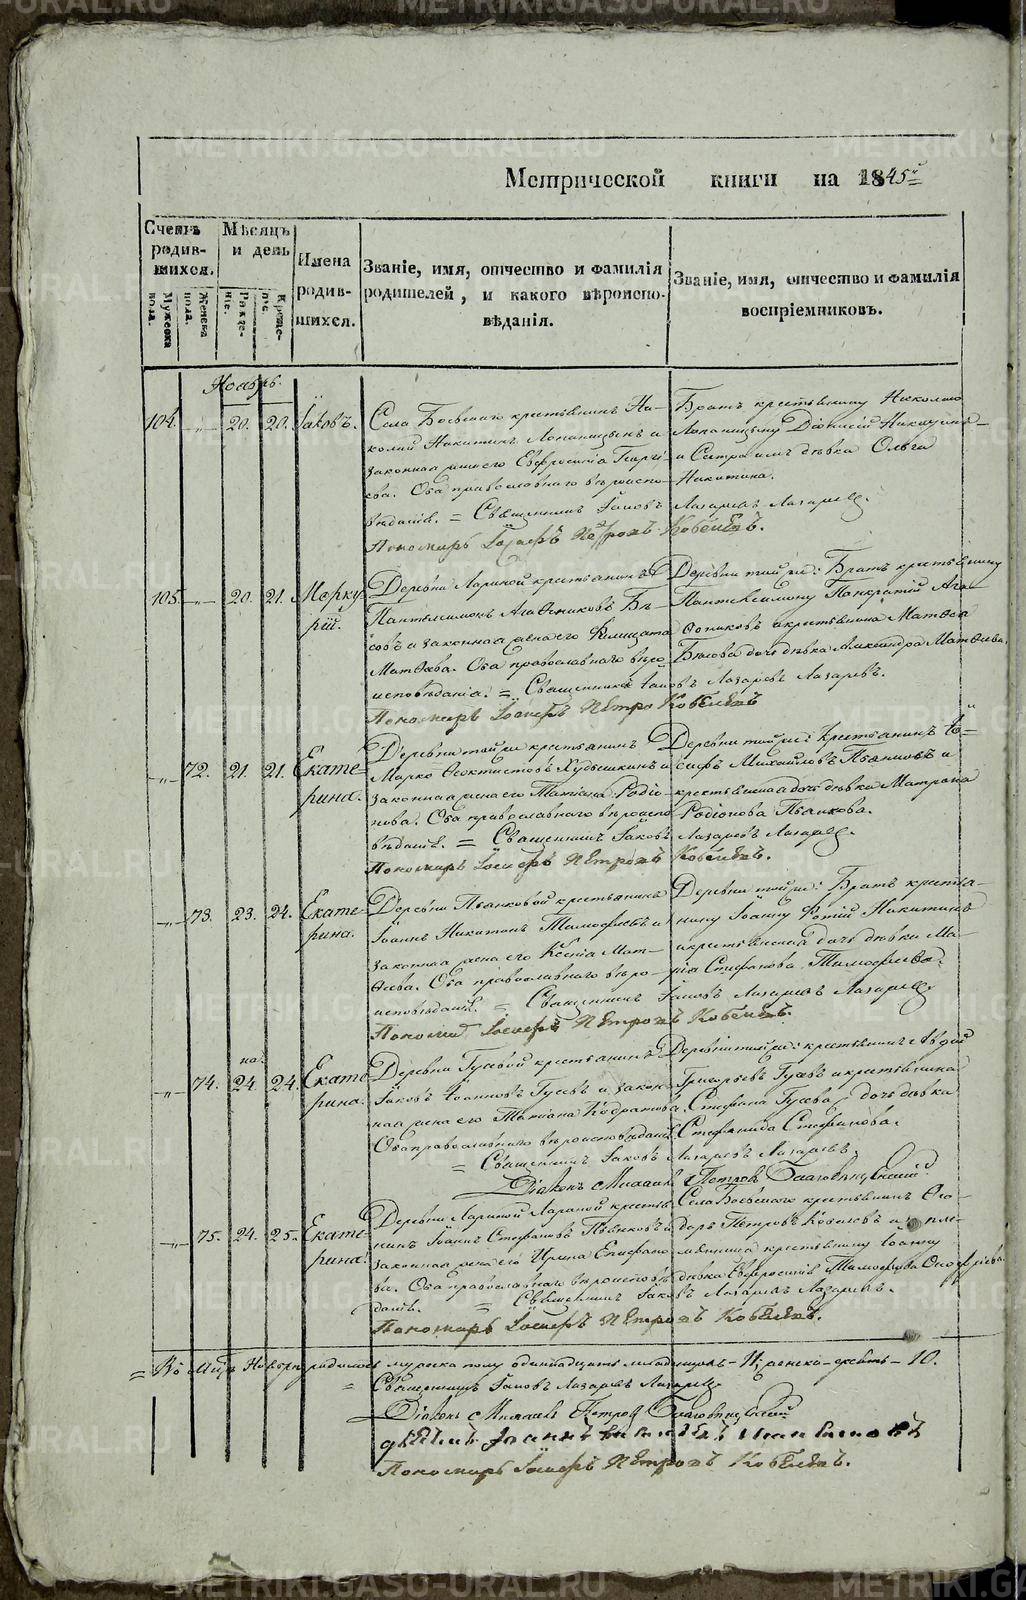 Метрической книги на 1845й
Счетъ родившихся.
Мужеска пола.
Женска пола.
Мѣсяцъ и день
Рожденіе.
Крещеніе.
Имена родившихся.
Званіе, имя, отчество и фамилія родителей, и какого вѣроисповѣданія.
Званіе, имя, отчество и фамилія воспріемниковъ.
Ноябрь.
104. 20. 20. Іаковъ.
Села Боевскаго крестьянинъ Ни-
колай Никитинъ Лопаницынъ и
законная жена его Евфросинія Георгі-
ева. Оба православнаго вѣроиспо-
вѣданія. = Священникъ Іаковъ Лазаревъ Лазаревъ.
Пономарь Іосифъ Петровъ Кобелевъ.
Братъ крестьянину Николаю
Лопаницыну Діонисій Никитинъ
и Сестра имъ дѣвка Ольга
Никитина.
105. 20. 21. Мерку-
рій.
Деревни Лариной крестьянинъ
Пантелеимонъ Агафониковъ Бѣ-
ловъ и законная жена его Гликерія
Матѳеева. Оба православнаго вѣро-
исповѣданія. = Священникъ Іаковъ Лазаревъ Лазаревъ.
Пономарь Іосифъ Петровъ Кобелевъ
Деревни той же: Братъ крестьянину
Пантелеимону Панкратій Ага-
ѳониковъ и крестьянина Матѳея
Бѣлова дочь дѣвка Александра Матѳеева.
72. 21. 21. Екате-
рина.
Деревни той же крестьянинъ
Марко Ѳеоктистовъ Худышкинъ и
законная жена его Татіана Родіо-
нова. Оба православнаго вѣроиспо-
вѣданія. = Священникъ Іаковъ Лазаревъ Лазаревъ.
Пономарь Іосифъ Петровъ Кобелевъ.
Деревни той же: крестьянинъ Іо-
сифъ Михайловъ Пьянковъ и
крестьянина дочь дѣвка Матрона
Родіонова Пьянкова.
73. 23. 24. Екате-
рина.
Деревни Пьянковой крестьянинъ
Іоаннъ Никитинъ Тимофѣевъ и
законная жена его Ксенія Мат-
ѳеева. Оба православнаго вѣро-
исповѣданія. = Священникъ Іаковъ Лазаревъ Лазаревъ
Пономарь Іосифъ Петровъ Кобелевъ.
Деревни той же: Братъ крестья-
нину Іоанну Фотій Никитинъ
и крестьянская дочь дѣвка Ма-
рія Стефанова Тимофѣева.
74. на 24. 24. Екате-
рина.
Деревни Гусевой крестьянинъ
Іаковъ Іоанновъ Гусевъ и закон-
ная жена его Татіана Кодратова
Оба православнаго вѣроисповѣданія.
= Священникъ Іаковъ Лазаревъ Лазаревъ
Діаконъ Михаилъ Петровъ Благовѣщенскій.
Деревни той же: крестьянинъ Авдій
Григорьевъ Гусевъ и крестьянина
Стефана Гусева дочь дѣвка
Стефанида Стефанова.
75. 24. 25. Екате-
рина.
Деревни Лариной крестья-
нинъ Іоаннъ Стефановъ Пьянковъ и
законная жена его Ирина Епифано-
ва. Оба православнаго вѣроисповѣ-
данія. = Священникъ Іаковъ Лазаревъ Лазаревъ.
Пономарь Іосифъ Петровъ Кобелевъ.
Села Боевскаго крестьянинъ Ѳео-
доръ Петровъ Кобелевъ и пле-
мянница крестьянину Іоанну
дѣвка Евфросинія Тимофѣева Онофріева.
= Въ Мцѣ Ноябрѣ родилось мужеска полу одиннадцать младенцовъ - 11; женска - десять - 10.
= Священникъ Іаковъ Лазаревъ Лазаревъ.
Діаконъ Михаилъ Петровъ Благовѣщенскій
Пономарь Іосифъ Петровъ Кобелевъ.
METRIKI.GASO-URAL.RU